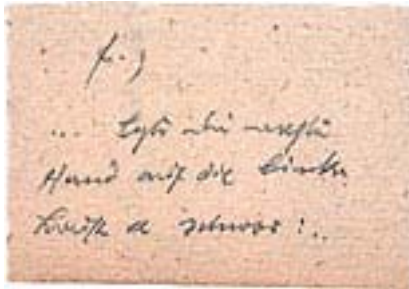 ... legte die rechte
Hand auf die linke
Brust u schwor : ..